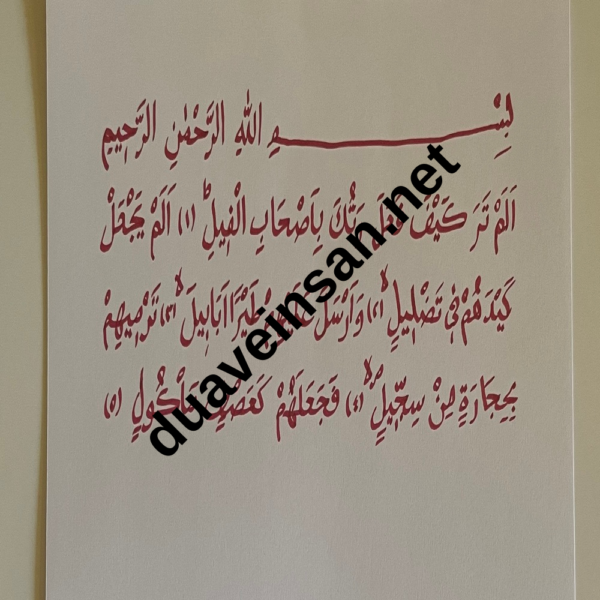 بِسْمِ اللهِ الرَّحْمٰنِ الرَّحِيمِ
اَلَمْ تَرَ كَيْفَ فَعَلَ رَبُّكَ بِاَصْحَابِ الْفِيلِۜ (١) اَلَمْ يَجْعَلْ
كَيْدَهُمْ فِي تَضْلِيلٍۙ (٢) وَاَرْسَلَ عَلَيْهِمْ طَيْرًا اَبَابِيلَۙ (٣) تَرْمِيهِمْ
بِحِجَارَةٍ مِنْ سِجِّيلٍۙۖ (٤) فَجَعَلَهُمْ كَعَصْفٍ مَأْكُولٍ (٥)
duaveinsan.net